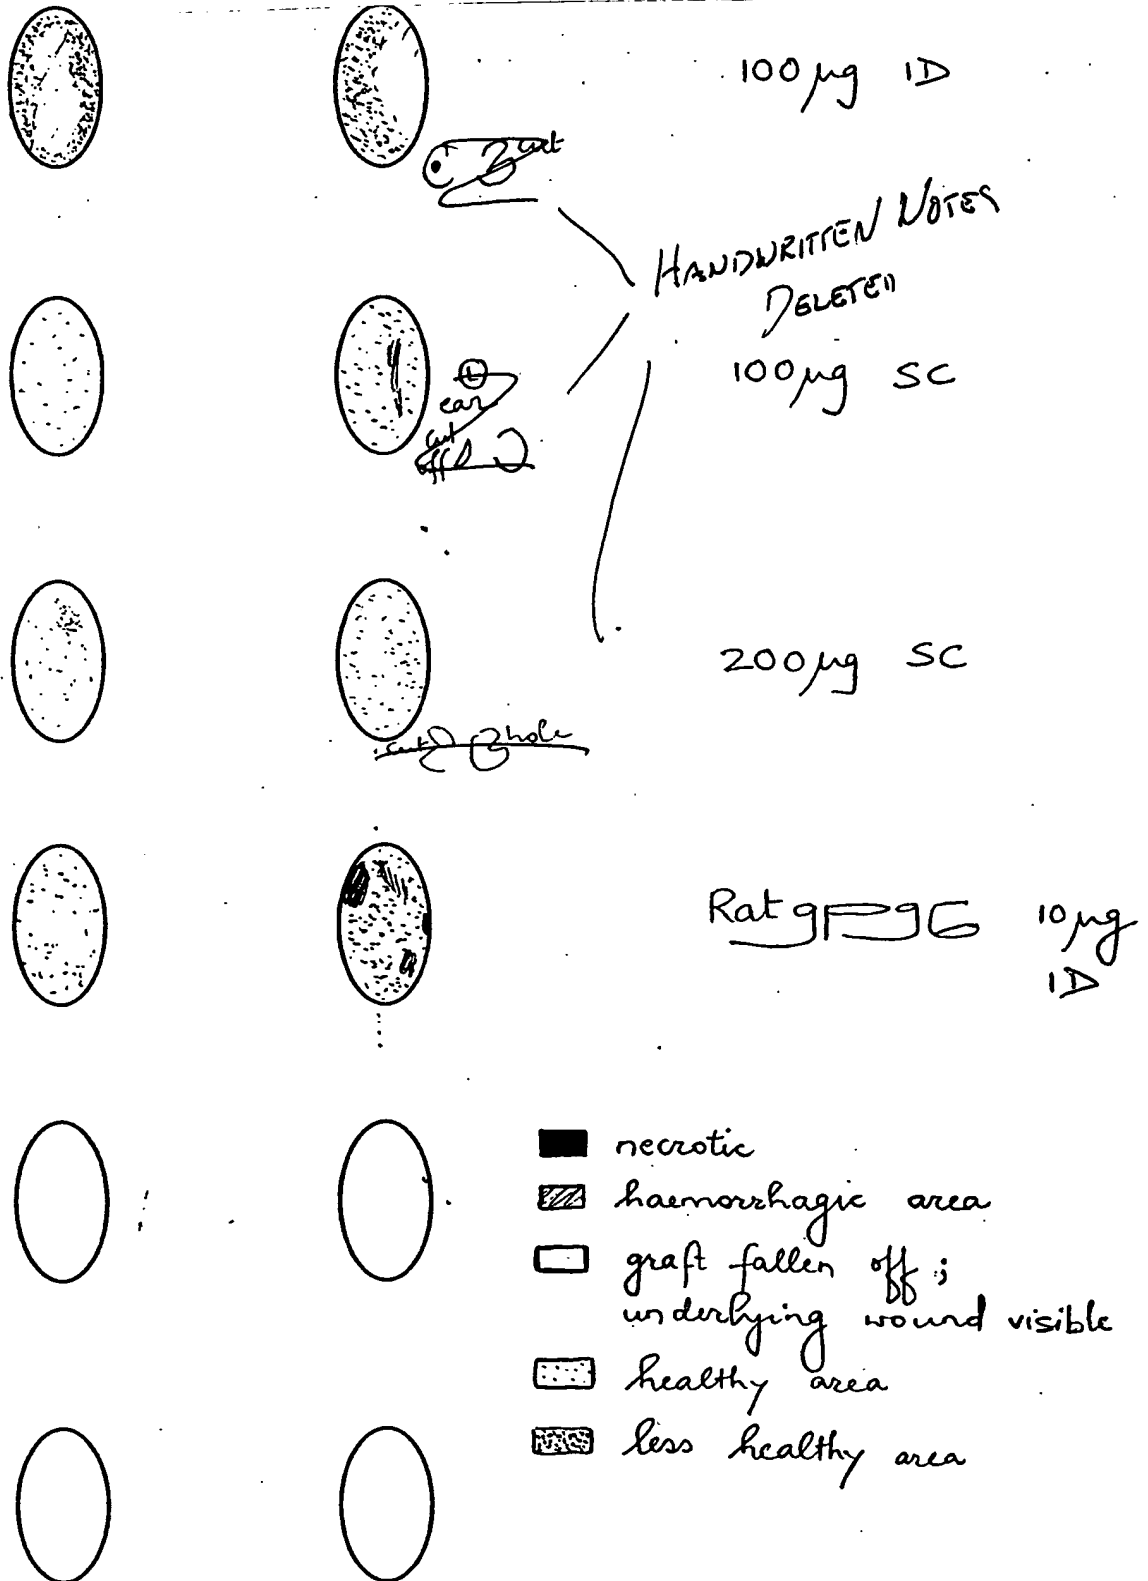 100 µg ID
cut
HANDWRITTEN NOTES
DELETED
100 µg SC
L
ear
cut
off
200 µg SC
cut hole
Rat gpg6 10 µg
ID
necrotic
haemorrhagic area
graft fallen off ;
underlying wound visible
healthy area
less healthy area